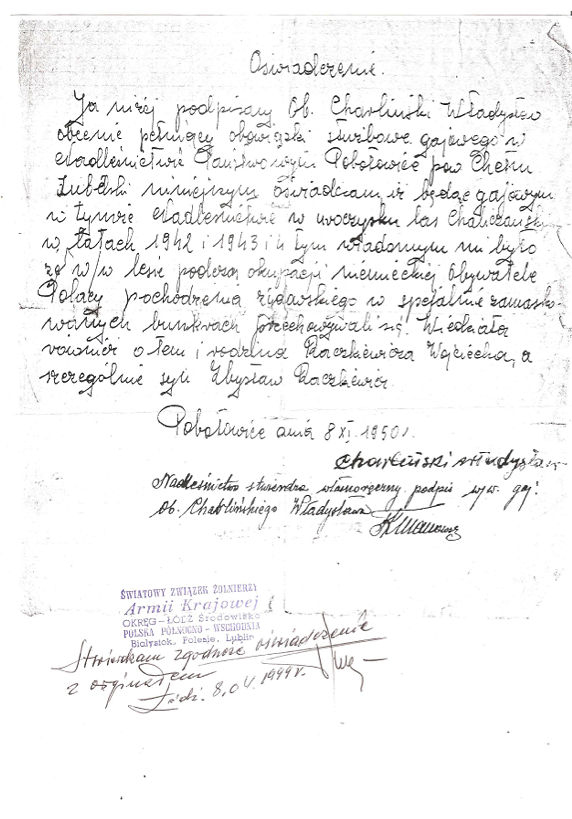 Oświadczenie.
Ja niżej podpisany Ob. Charliński Władysław
obecnie pełniący obowiązki służbowe gajowego w
Nadleśnictwie Państwowym Pobołowice pow Chełm
Lubelski niniejszym oświadczam iż będąc gajowym
w tymże Nadleśnictwie w uroczysku las
w latach 1942 i 1943 i 4 tym wiadomym mi było
że w/w lesie podczas okupacji niemieckiej Obywatele
Polacy pochodzenia żydowskiego w specjalnie zamasko-
wanych bunkrach przechowywali się. Wiedziała
również o tem i rodzina Raczkiewicza Wojciecha, a
szczególnie syn Zbysław Raczkiewicz.
Pobołowice dnia 8 XI. 1950 r.
Charliński Władysław
Nadleśnictwo stwierdza własnoręczny podpis w/w. gaj.
Ob. Charlińskiego Władysława
ŚWIATOWY ZWIĄZEK ŻOŁNIERZY
Armii Krajowej
OKRĘG - ŁÓDŹ Środowisko
POLSKA PÓŁNOCNO - WSCHODNIA
Białystok, Polesie, Lublin
Stwierdzam zgodność oświadczenie
z orginałem
Łódź. 8.04.1999 r.